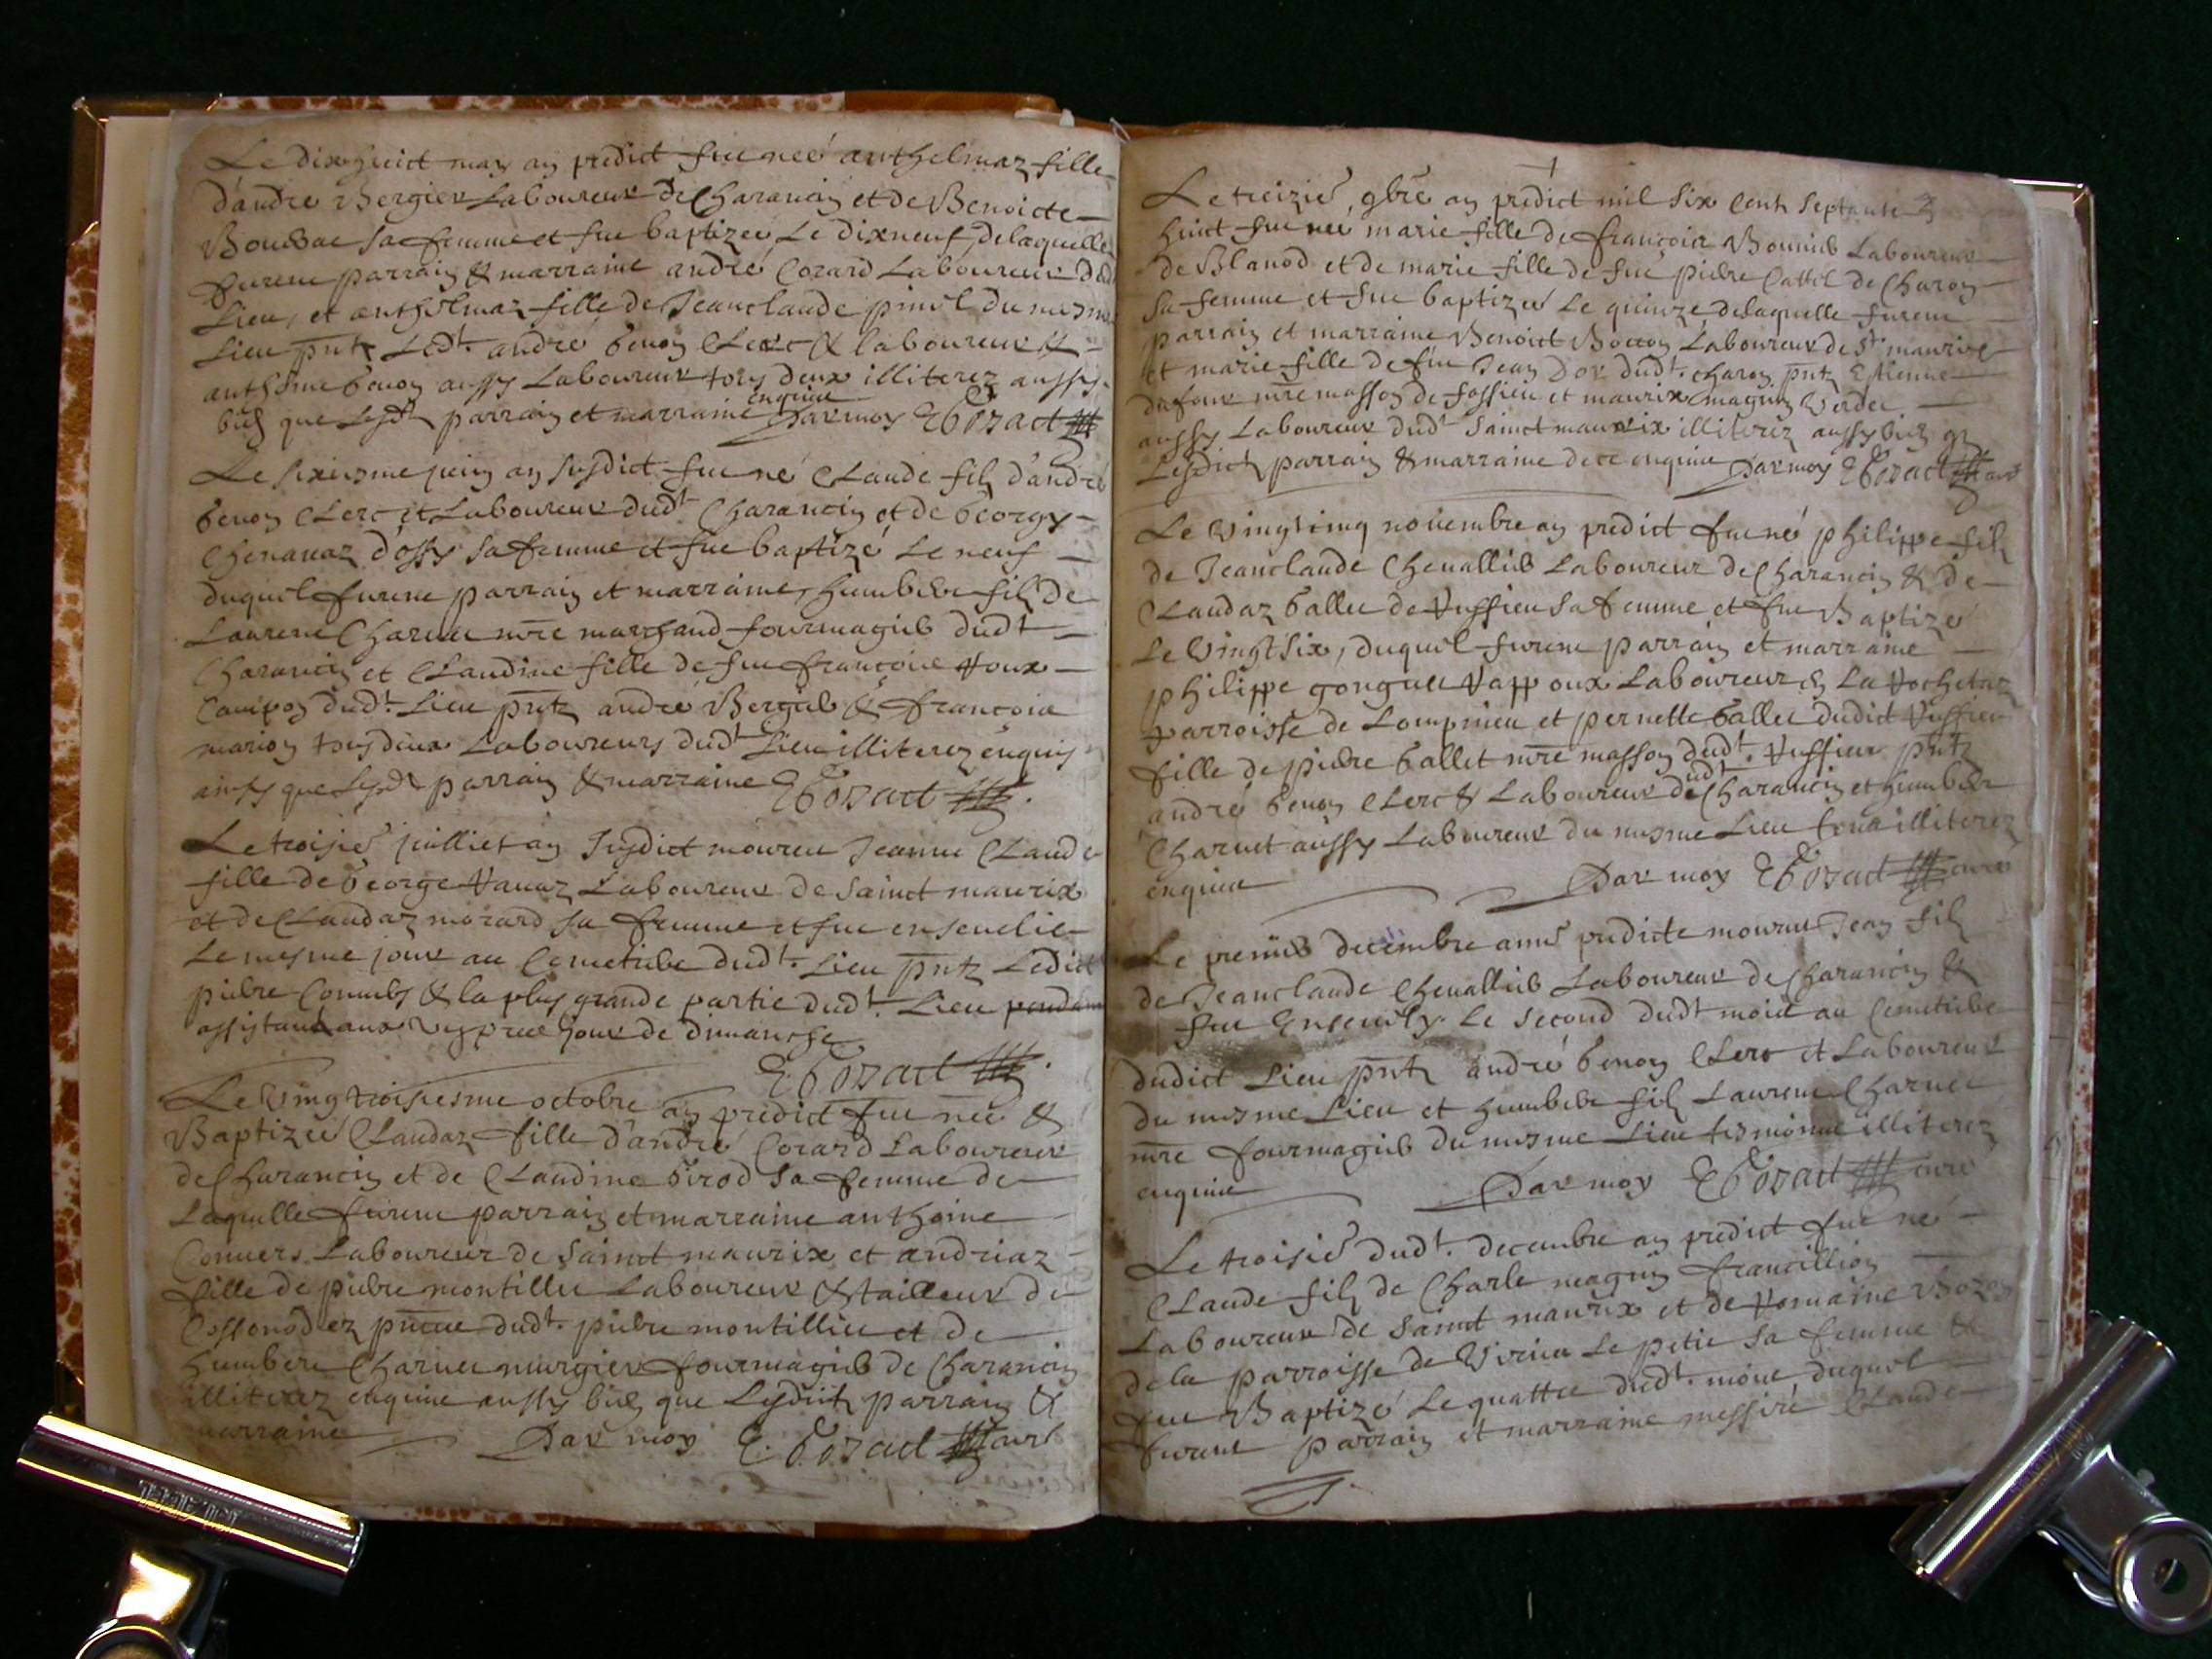 Le dixhuict may an predict fut neé anthelmaz fille
d'andre Bergier Laboureur de Charancin et de Benoicte
sa femme et fut baptizeé Le dixneuf, delaquelle
furent parrain & marraine andré Cozard Laboureur dud
Lieu, et anthelmaz fille de Jeanclaude pinel du mesme
Lieu pntz Ledt. andre Genon Clerc & laboureur &
anthelme Genon aussy Laboureur tous deux illiterez aussy
bien que Lesdt parrain et marraine enquis Par moy
Le sixiesme juin an susdict fut né Claude filz d'andre
Genon Clerc et Laboureur dudt Charancin et de Georgy
Chenavaz d'ossy sa femme et fut baptizé Le neuf
duquel furent parrain et marraine, humbert filz de
Laurent Charvet mre marchand fourmagier dudt
Charancin et Claudine fille de fut françois
dudt. Lieu pntz andré Bergier & françois
marion tous deux Laboureurs dudt Lieu illiterez enquis
ainsy que Lesdt parrain & marraine
Le troisie juilliet an susdict mourut Jeanne Claude
fille de George Laboureur de Sainct maurix
et de Claudaz morard sa femme et fut ensevelie
Le mesme jour au Cemetiere dudt. Lieu pntz Ledict
pierre Convers & la plus grande partie dudt. Lieu
assistant aux vespres jour de dimanche
Le vingtroisiesme octobre an predict fut neé &
Baptizeé Claudaz fille d'andré Cozard Laboureur
de Charancin et de Claudine Girod sa femme de
Laquelle furent parrain et marraine anthoine
Convers Laboureur de Sainct maurix et andriaz
fille de pierre montillet Laboureur & tailleur de
dudt. pierre montilliet et de
humbert Charvet fourmagier de Charancin
illiterez enquis aussy bien que Lesdicts parrain &
marraine Par moy curé
Le treizie 9bre an predict mil six cent septante
huict fut neé marie fille de françois Laboureur
de Blanod et de marie fille de fut pierre de Charon
sa femme et fut baptizeé Le quinze delaquelle furent
parrain et marraine Benoict Laboureur de St maurice
et marie fille de fut Jean dudt. charon pntz Etienne
dufour mre masson de fossieu et maurix magnin
aussy Laboureur dudt Sainct maurix illiterez aussy bien q
Lesdict parrain & marraine de ce enquis Par moy curé
Le vingtcinq novembre an predict fut né philippe filz
de Jeanclaude Chevallier Laboureur de Charancin & de
Claudaz Gallet de Vussieu sa femme et fut Baptizé
Le vingtsix, duquel furent parrain et marraine
philippe Laboureur
parroisse de Lompnieu et pernette Gallet dudict Vussieu
fille de pierre Gallet mre masson dudt. Vussieu pntz
andré Genon Clerc & Laboureur dudt Charancin et humbert
Charvet aussy Laboureur du mesme Lieu illiterez
enquis Par moy curé
Le premier decembre anné predicte mourut Jean filz
de Jeanclaude Chevallier Laboureur de Charancin &
fut Ensevely Le second dudt mois au Cemetiere
dudict Lieu pntz andré Genon Clerc et Laboureur
du mesme Lieu et humbert filz Laurent Charvet
mre fourmagier du mesme Lieu illiterez
enquis Par moy curé
Le troisie dudt. decembre an predict fut né
Claude filz de Charle magnin francillion
Laboureur de Sainct maurix et de Romaine
de la parroisse de Virieu Le petit sa femme &
fut Baptizé Le quattre dudt. mois duquel
furent parrain et marraine messire Claude